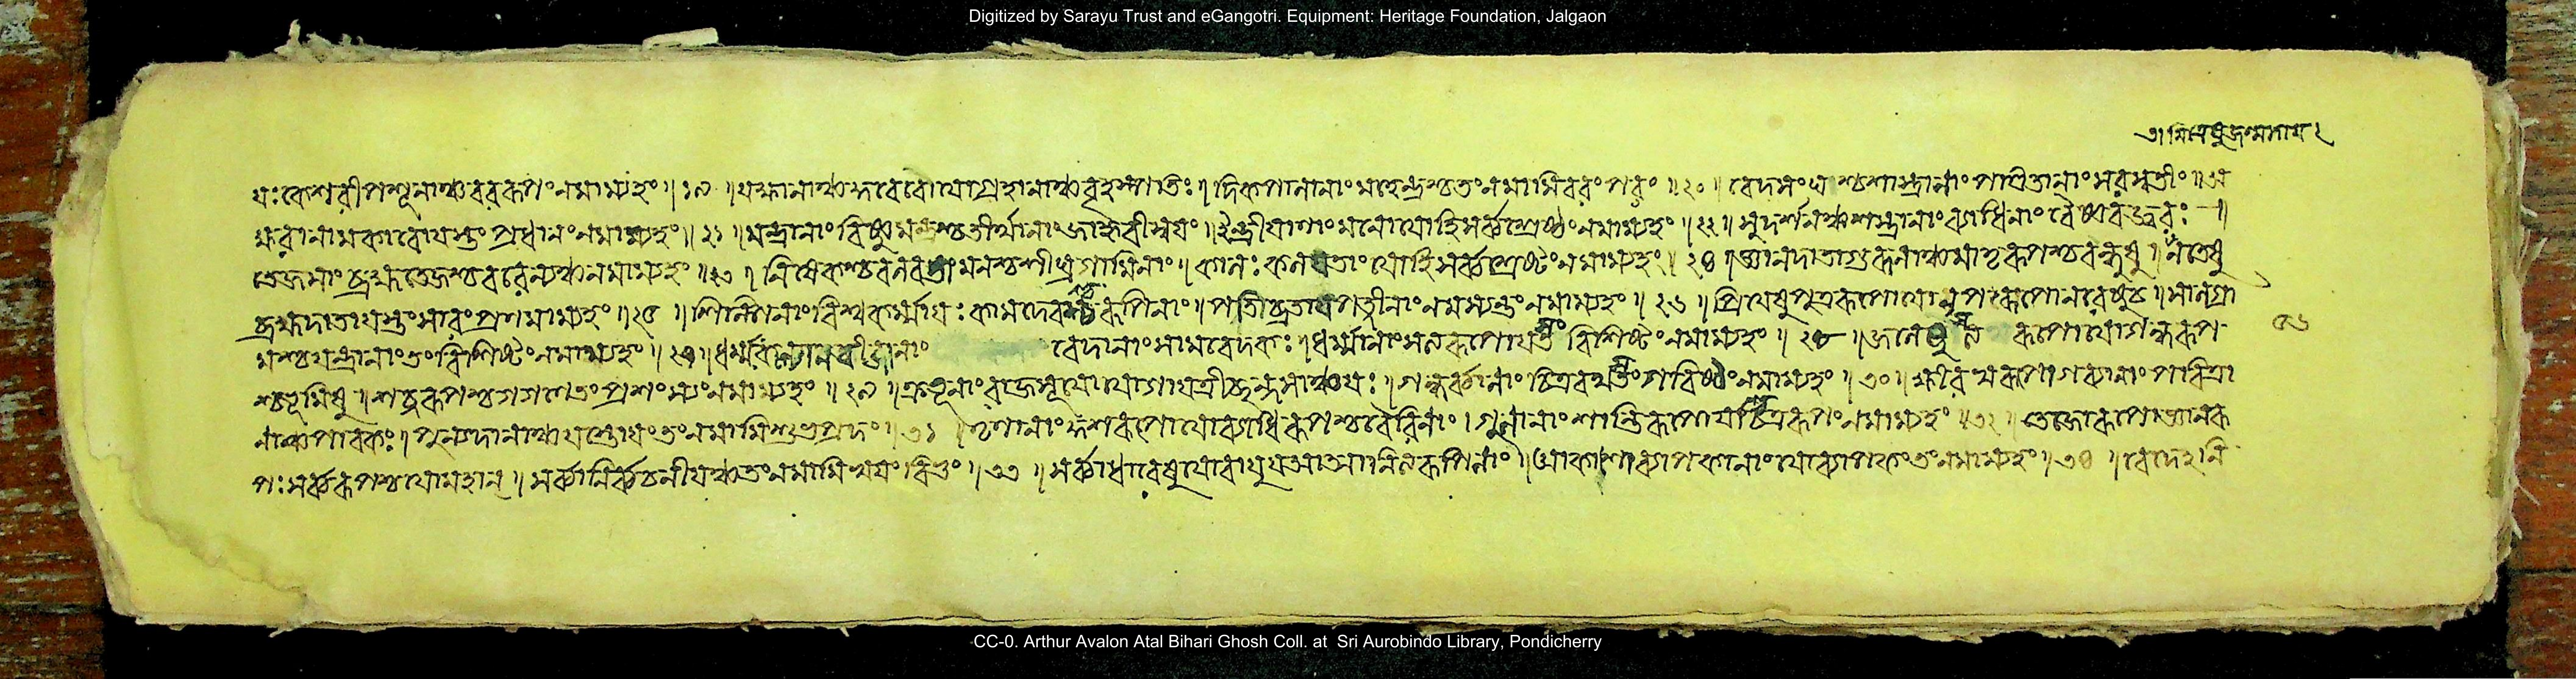 Digitized by Sarayu Trust and eGangotri. Equipment: Heritage Foundation, Jalgaon
যঃ কেশরী পশূনাঞ্চ বররূপং নমাম্যহং ॥ ১৯ ॥ বৃহস্পতিঃ । দিকপালানাং মহেন্দ্রশ্চ তং নমামি বরং পরং ॥ ২০ ॥ বেদসংঘশ্চ শাস্ত্রানাং পণ্ডিতানাং সরস্বতীং ॥ অ
ক্ষরানামকারো যস্তং প্রধানং নমাম্যহং ॥ ২১ ॥ মন্ত্রানাং বিষ্ণুমন্ত্রশ্চ তীর্থানাং জাহ্নবী স্বয়ং । ইন্দ্রীয়াণাং মনো যোহি সর্ব্বশ্রেষ্ঠং নমাম্যহং ॥ ২২ ॥ সুদর্শনঞ্চ শস্ত্রানাং ব্যাধিনাং বৈষ্ণবজ্বরঃ ।
তেজসাং ব্রহ্মতেজশ্চ বরেন্যঞ্চ নমাম্যহং ॥ ২৩ ॥ মনশ্চ শীঘ্রগামিনাং । কালঃ কলয়তাং যোহি সর্ব্বশ্রেষ্ঠং নমাম্যহং ॥ ২৪ ॥ জ্ঞানদাতা গুরূনাঞ্চ মাতৃরূপশ্চ বন্ধুষু ।
ব্রহ্মদাতা যস্তং সারং প্রণমাম্যহং ॥ ২৫ ॥ শিল্পিনাং বিশ্বকর্ম্মা যঃ কামদেবশ্চ রূপিনাং । পতিব্রতা চ পত্নীনাং নমস্যন্তং নমাম্যহং ॥ ২৬ ॥ প্রিয়েষু পুত্ররূপো যো নৃপরূপো নরেষু চ ॥ শালগ্রা
মশ্চ যন্ত্রানাং তং বিশিষ্টং নমাম্যহং ॥ ২৭ ॥ ধর্ম্ম বেদানাং সামবেদকঃ । ধর্ম্মানাং সত্যরূপো যস্তং বিশিষ্টং নমাম্যহং ॥ ২৮ ॥ জলে রূপো যো গন্ধরূপ
শ্চ ভূমিষু । শব্দরূপশ্চ গগণে তং প্রণম্যং নমাম্যহং ॥ ২৯ ॥ ক্রতূনাং রাজসূয়ো যো গায়ত্রী ছন্দসাঞ্চ যঃ । গন্ধর্ব্বানাং চিত্ররথস্তং গরিষ্ঠং নমাম্যহং ॥ ৩০ ॥ ক্ষীরস্বরূপো গব্যানাং পবিত্রা
নাঞ্চ পাবকঃ । পুন্যদানাঞ্চ যস্তোত্রং তং নমামি শুভপ্রদং ॥ ৩১ ॥ তৃণানাং কুশরূপো যো ব্যাধিরূপশ্চ বৈরিনাং । গুনানাং শান্তিরূপো যশ্চিত্ররূপং নমাম্যহং ॥ ৩২ ॥ তেজোরূপো জ্ঞানরূ
পঃ সর্ব্বরূপশ্চ যো মহান্ ॥ সর্ব্বানির্ব্বচনীয়ঞ্চ তং নমামি স্বয়ং বিভুং ॥ ৩৩ ॥ সর্ব্বাধারেষু যো বায়ু । আকাশো ব্যাপকানাং যো ব্যাপকং তং নমাম্যহং ॥ ৩৪ ॥ বেদেঽনি
৫৬
CC-0. Arthur Avalon Atal Bihari Ghosh Coll. at Sri Aurobindo Library, Pondicherry